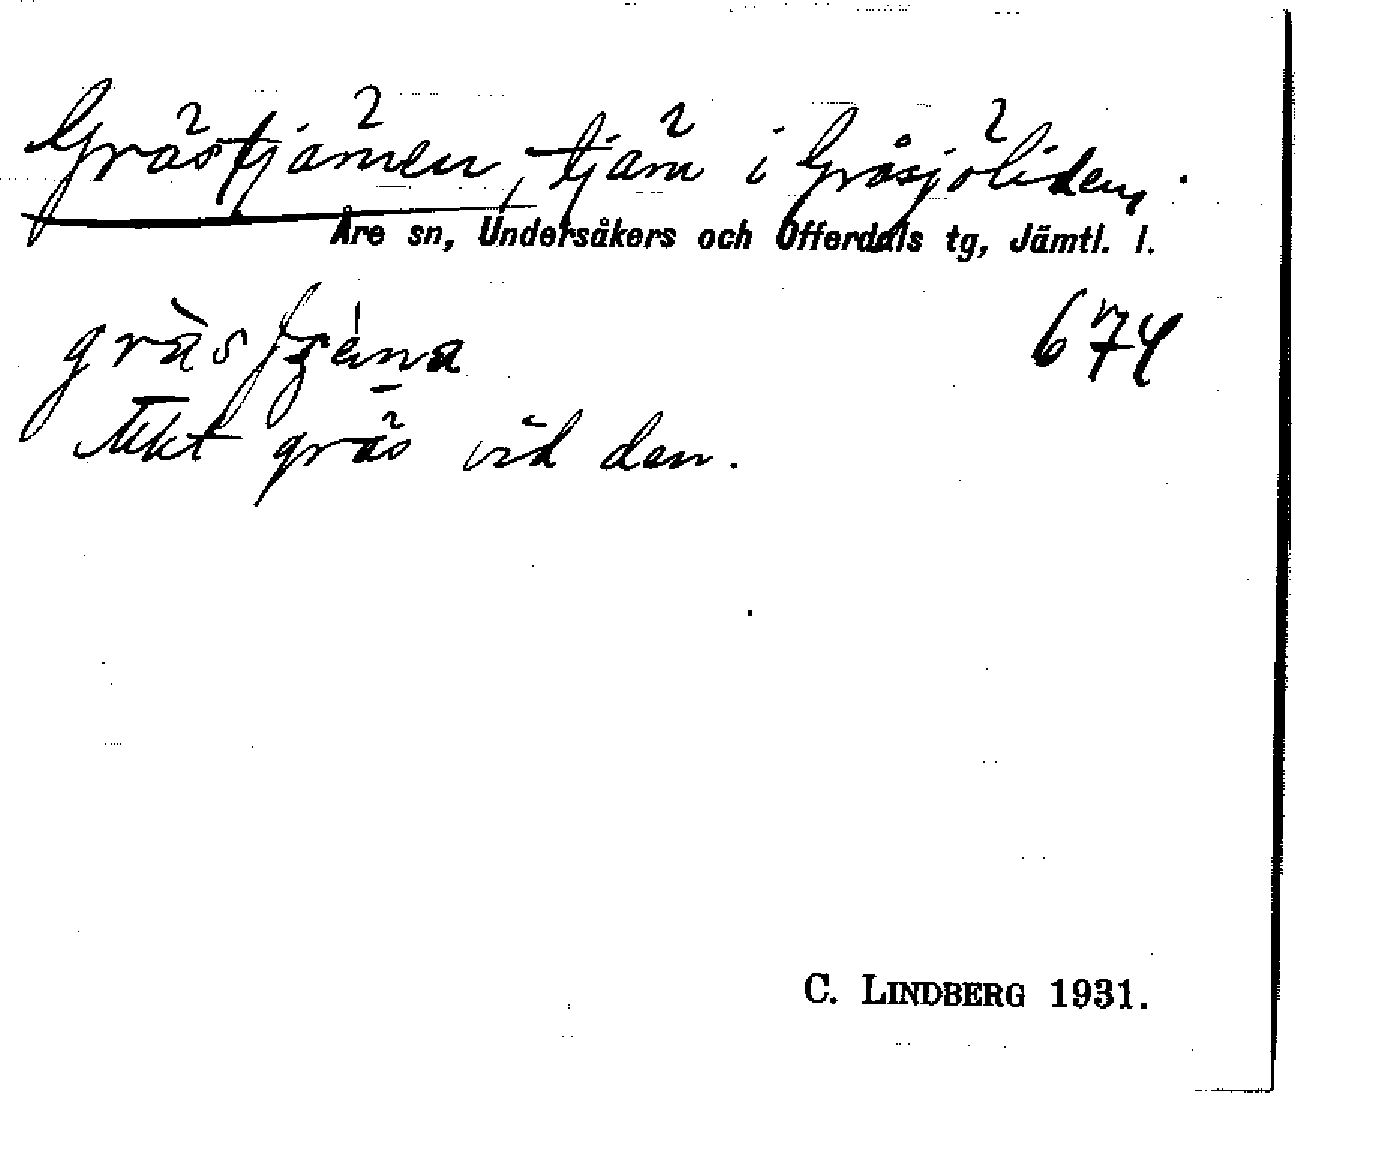 Grästjärnen, tjärn i Gråsjöliden,
Åre sn, Undersåkers och Offerdals tg, Jämtl. l.
674
gräs vid den.
C. LINDBERG 1931.